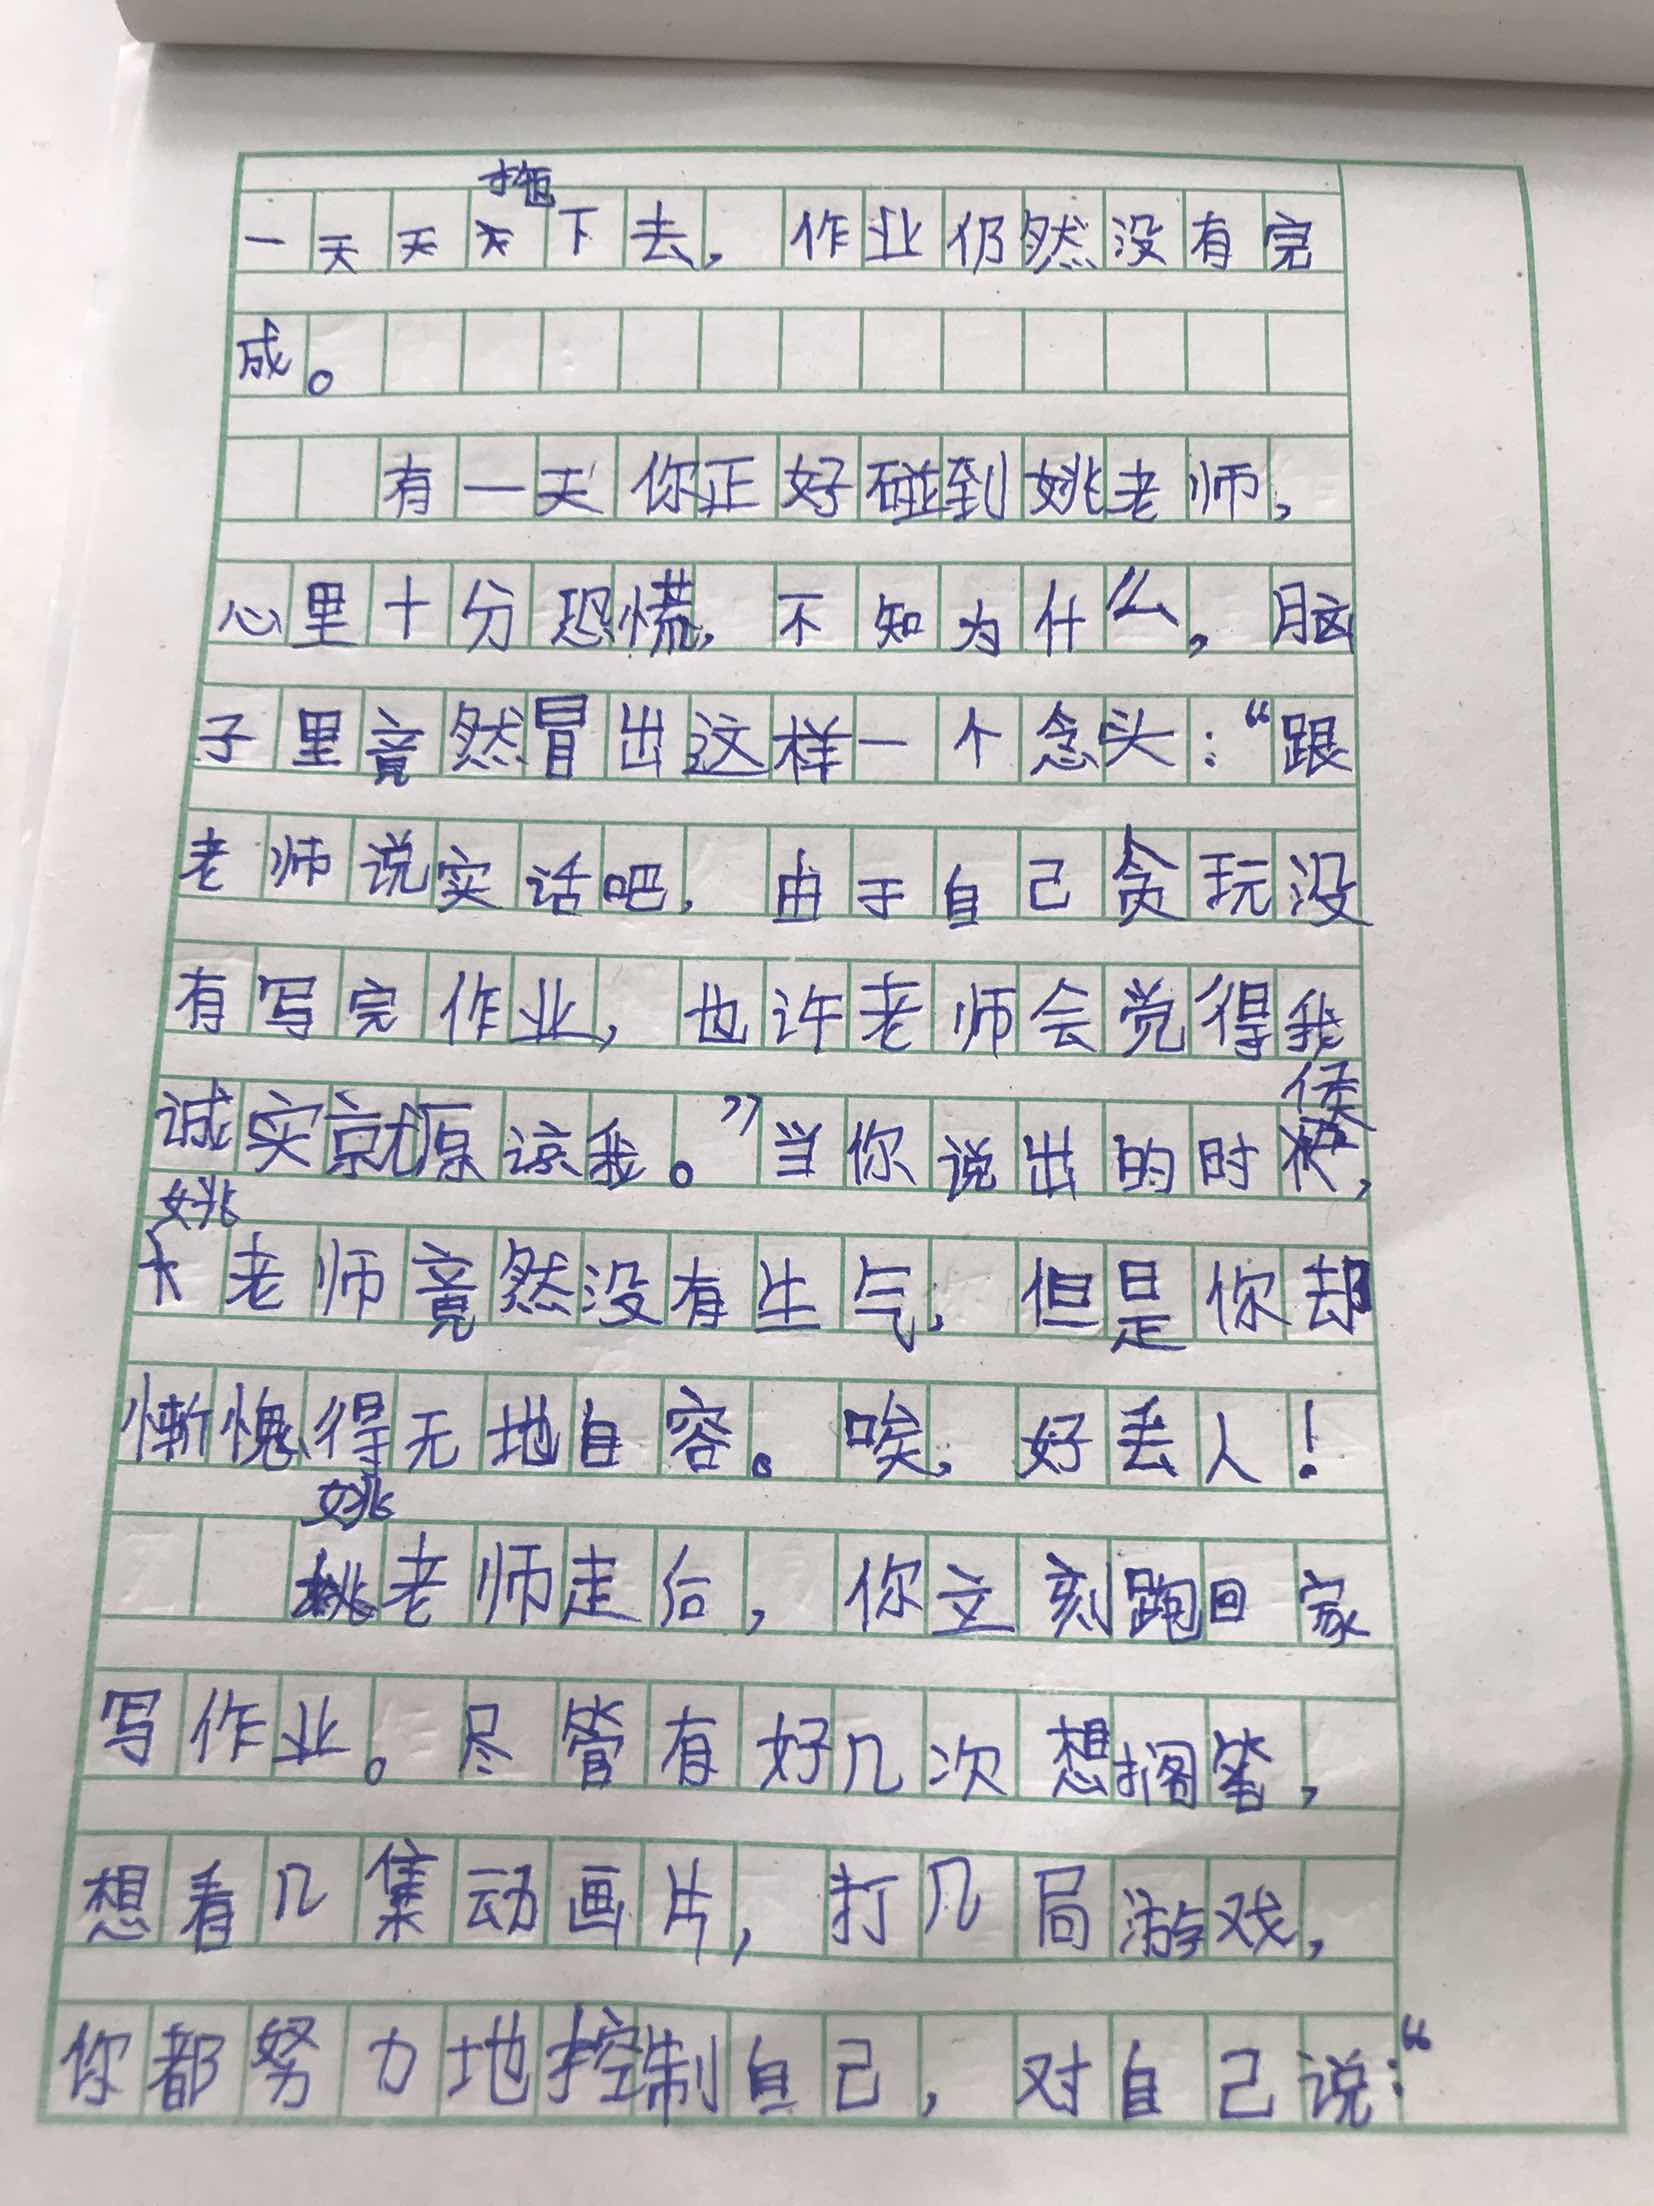 一天天拖下去，作业仍然没有完
成。
有一天你正好碰到姚老师，
心里十分恐慌，不知为什么，脑
子里竟然冒出这样一个念头：“跟
老师说实话吧，由于自己贪玩没
有写完作业，也许老师会觉得我
诚实就原谅我。”当你说出的时候，
姚老师竟然没有生气，但是你却
惭愧得无地自容。唉，好丢人！
姚老师走后，你立刻跑回家
写作业。尽管有好几次想搁笔，
想看几集动画片，打几局游戏，
你都努力地控制自己，对自己说：“